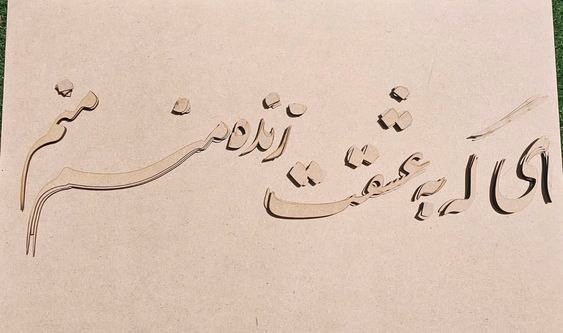 ای که به عشقت زنده منم